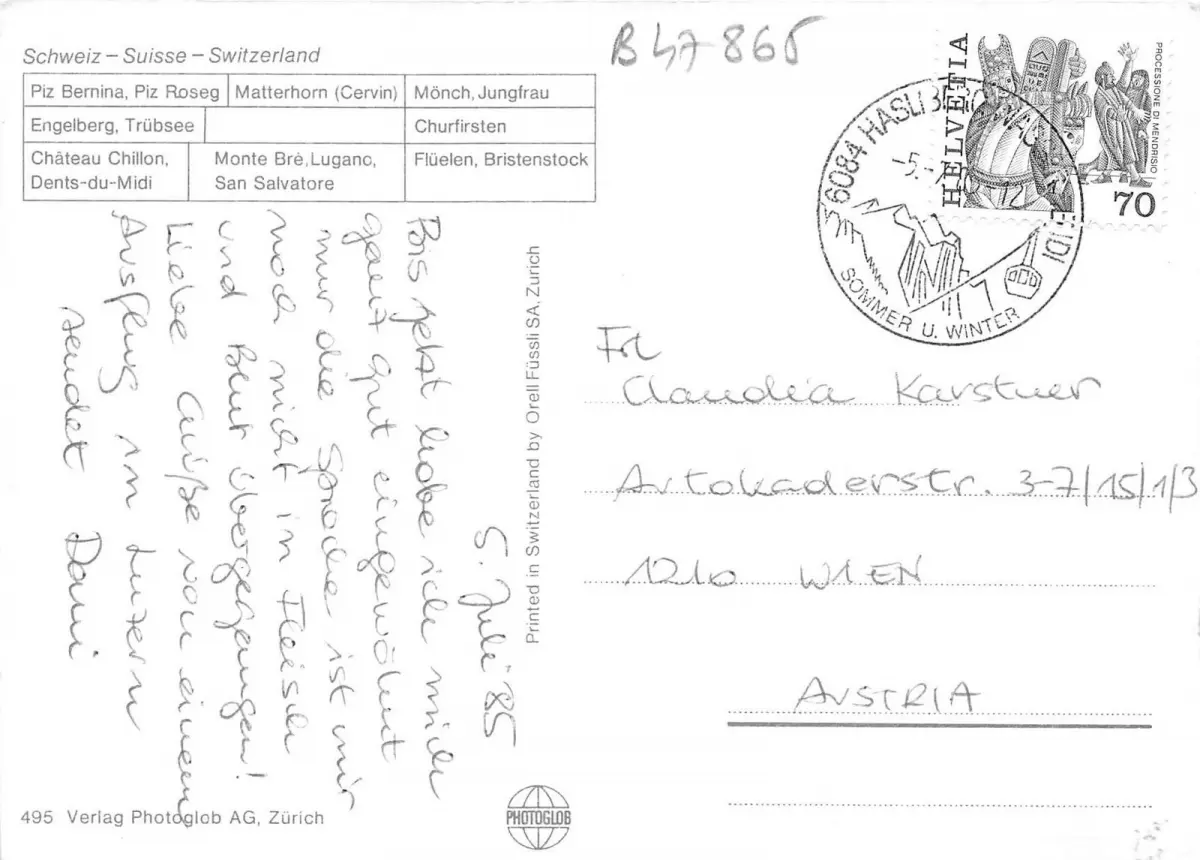 Schweiz – Suisse – Switzerland
Piz Bernina, Piz Roseg
Matterhorn (Cervin)
Mönch, Jungfrau
Engelberg, Trübsee
Churfirsten
Château Chillon,
Dents-du-Midi
Monte Brè, Lugano,
San Salvatore
Flüelen, Bristenstock
B 47865
HELVETIA
PROCESSIONE DI MENDRISIO
70
6084 HASLIBERG
-5.-7
12
SOMMER U. WINTER
5. Juli '85
Bis jetzt habe ich mich
ganz gut eingewöhnt
nur die Sprache ist mir
noch nicht in Fleisch
und Blut übergegangen!
Liebe Grüße von einem
Ausflug in Luzern
sendet Dani
Printed in Switzerland by Orell Füssli SA, Zurich
Frl
Claudia Karstner
Artokaderstr. 3-7/15/1/3
1210 WIEN
AUSTRIA
495 Verlag Photoglob AG, Zürich
PHOTOGLOB